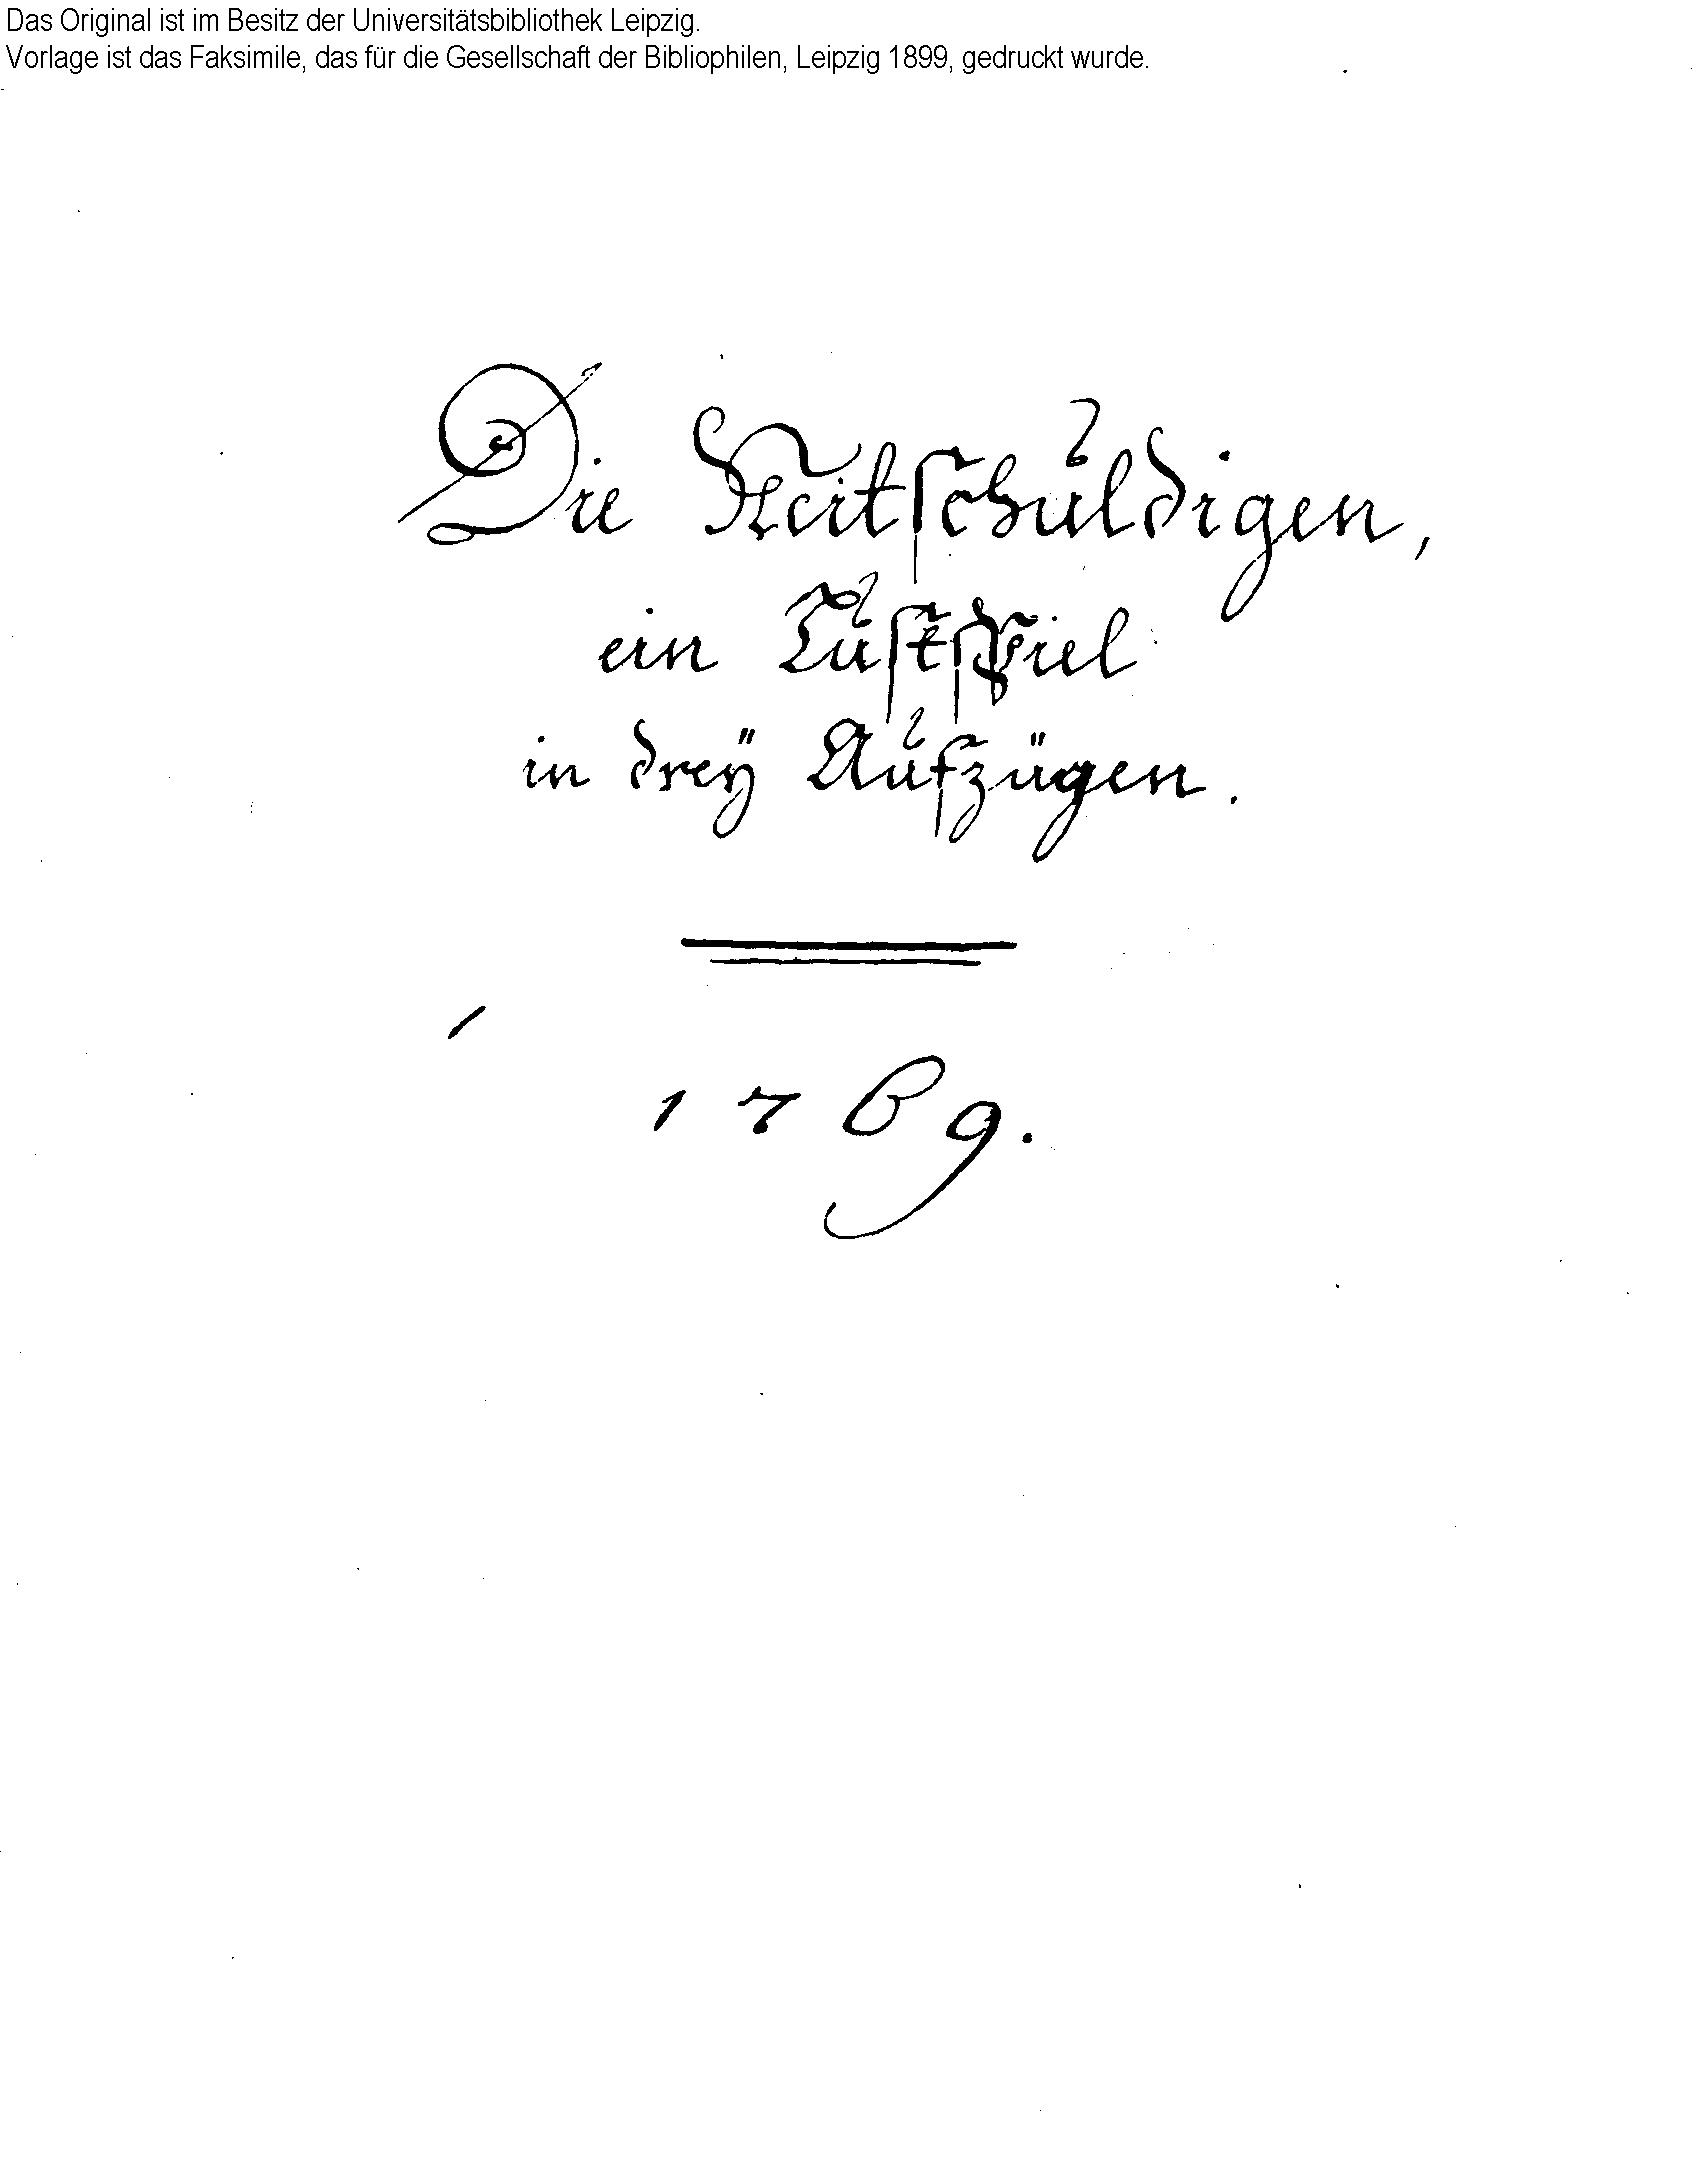 Das Original ist im Besitz der Universitätsbibliothek Leipzig.
Vorlage ist das Faksimile, das für die Gesellschaft der Bibliophilen, Leipzig 1899, gedruckt wurde.
Die Mitschuldigen,
ein Lustspiel
in dreÿ Aufzügen.
1769.